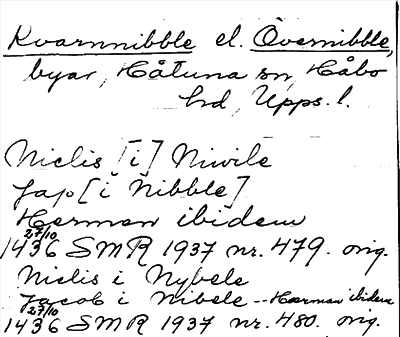 Kvarnnibble el. Övernibble,
byar, Håtuna sn, Håbo
hd, Upps. l.
Niclis [i] Niwile
Jap [i Nibble]
Herman ibidem
27/10
1436 SMR 1937 nr. 479. orig.
Niclis i Nybele
Jacob i Nibele -- Herman ibidem
27/10
1436 SMR 1937 nr. 480. orig.